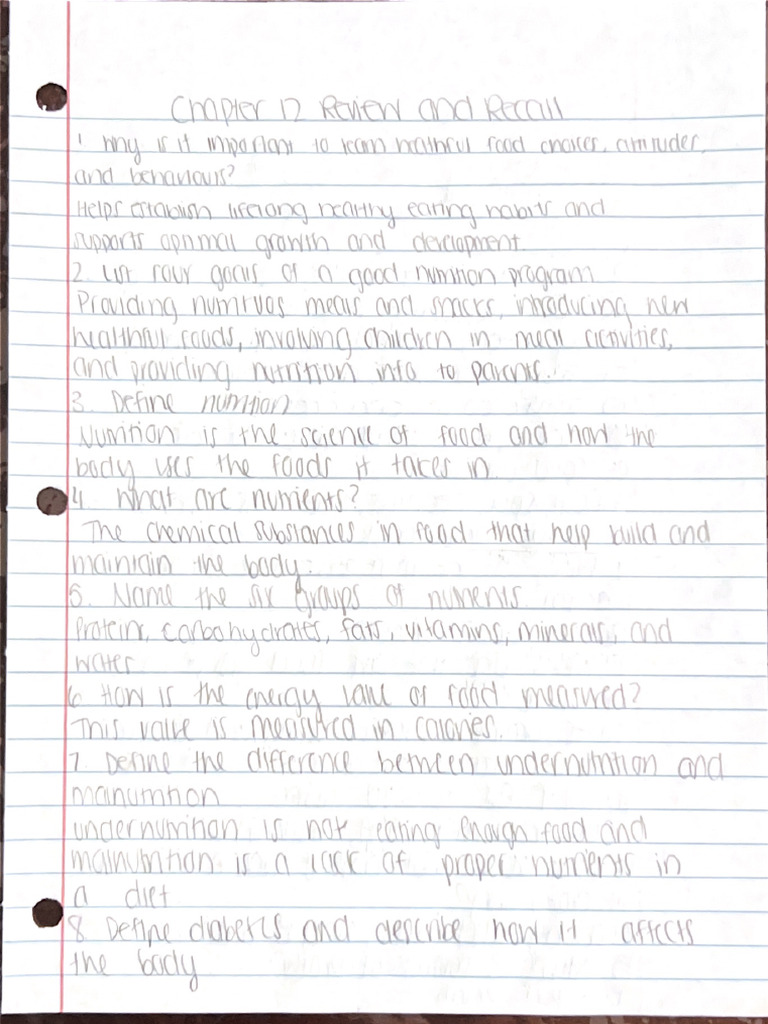 Chapter 12 Review and Recall
1 Why is it important to learn healthful food choices, attitudes,
and behaviours?
Helps establish lifelong healthy eating habits and
supports optimal growth and development.
2. List four goals of a good nutrition program
Providing nutritious meals and snacks, introducing new
healthful foods, involving children in meal activities,
and providing nutrition info to parents.
3. Define nutrition
Nutrition is the science of food and how the
body uses the foods it takes in
4. What are nutrients?
The chemical substances in food that help build and
maintain the body.
5. Name the six groups of nutrients.
Protein, carbohydrates, fats, vitamins, minerals, and
water
6 How is the energy value of food measured?
This value is measured in calories.
7. Define the difference between undernutrition and
malnutrition
undernutrition is not eating enough food and
malnutrition is a lack of proper nutrients in
a diet
8 Define diabetes and describe how it affects
the body